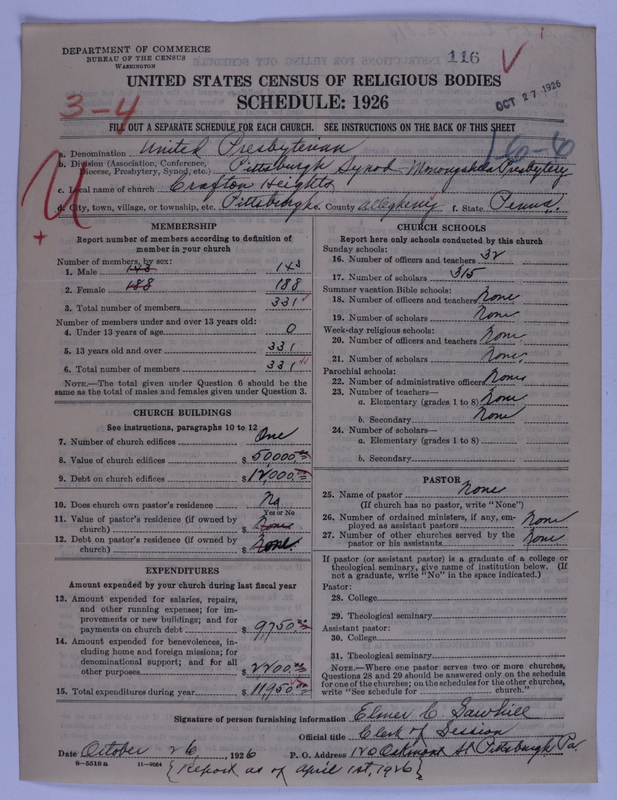 DEPARTMENT OF COMMERCE
BUREAU OF THE CENSUS
WASHINGTON
116
OCT 27 1926
UNITED STATES CENSUS OF RELIGIOUS BODIES
SCHEDULE: 1926
3-4
FILL OUT A SEPARATE SCHEDULE FOR EACH CHURCH. SEE INSTRUCTIONS ON THE BACK OF THIS SHEET
16-6
a. Denomination United Presbyterian
b. Division (Association, Conference, Diocese, Presbytery, Synod, etc.) Pittsburgh Synod - Monongahela Presbytery
c. Local name of church Crafton Heights
d. City, town, village, or township, etc. Pittsburgh e. County Allegheny f. State Penna.
MEMBERSHIP
Report number of members according to definition of
member in your church
Number of members, by sex:
1. Male 143 143
2. Female 188 188
3. Total number of members 331
Number of members under and over 13 years old:
4. Under 13 years of age 0
5. 13 years old and over 331
6. Total number of members 331
NOTE.—The total given under Question 6 should be the
same as the total of males and females given under Question 3.
CHURCH BUILDINGS
See instructions, paragraphs 10 to 12
7. Number of church edifices One
8. Value of church edifices $50000.00
9. Debt on church edifices $12,000.00
10. Does church own pastor's residence? No
Yes or No
11. Value of pastor's residence (if owned by
church) $ None
12. Debt on pastor's residence (if owned by
church) $ None.
EXPENDITURES
Amount expended by your church during last fiscal year
13. Amount expended for salaries, repairs,
and other running expenses; for im-
provements or new buildings; and for
payments on church debt $ 9,750.00
14. Amount expended for benevolences, in-
cluding home and foreign missions; for
denominational support; and for all
other purposes $ 2,200.00
15. Total expenditures during year $ 11,950.00
CHURCH SCHOOLS
Report here only schools conducted by this church
Sunday schools:
16. Number of officers and teachers 32
17. Number of scholars 315
Summer vacation Bible schools:
18. Number of officers and teachers None
19. Number of scholars None
Week-day religious schools:
20. Number of officers and teachers None
21. Number of scholars None.
Parochial schools:
22. Number of administrative officers None
23. Number of teachers—
a. Elementary (grades 1 to 8) None
b. Secondary None
24. Number of scholars—
a. Elementary (grades 1 to 8)
b. Secondary
PASTOR
25. Name of pastor None
(If church has no pastor, write "None")
26. Number of ordained ministers, if any, em-
ployed as assistant pastors None
27. Number of other churches served by the
pastor or his assistants None
If pastor (or assistant pastor) is a graduate of a college or
theological seminary, give name of institution below. (If
not a graduate, write "No" in the space indicated.)
Pastor:
28. College
29. Theological seminary
Assistant pastor:
30. College
31. Theological seminary
NOTE.—Where one pastor serves two or more churches,
Questions 28 and 29 should be answered only on the schedule
for one of the churches; on the schedules for the other churches,
write "See schedule for church."
Signature of person furnishing information Elmer C. Sawhill
Official title Clerk of Session
Date October 26, 1926 P. O. Address 120 Oakmont St Pittsburgh Pa.
8-5518a 11-9054
{Report as of April 1st, 1926}